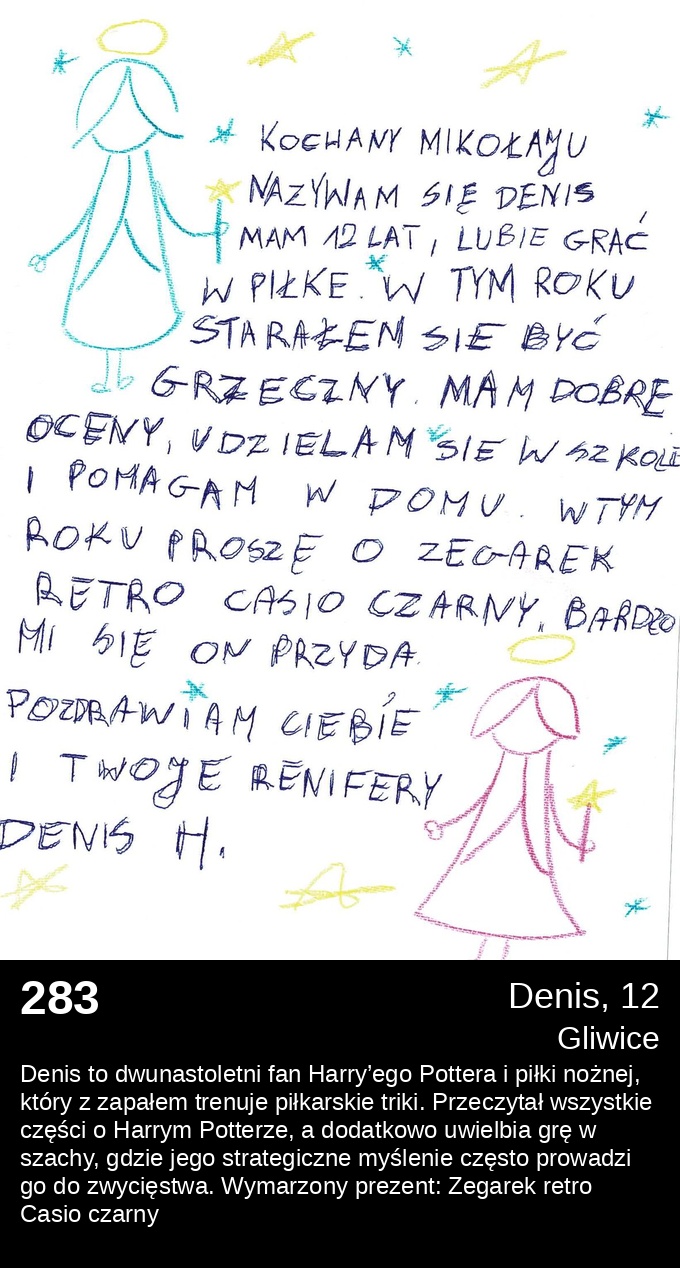 KOCHANY MIKOŁAJU
NAZYWAM SIĘ DENIS
MAM 12 LAT, LUBIE GRAĆ
W PIŁKE. W TYM ROKU
STARAŁEM SIE BYĆ
GRZECZNY. MAM DOBRE
OCENY, UDZIELAM SIE W SZKOLE
I POMAGAM W DOMU. W TYM
ROKU PROSZĘ O ZEGAREK
RETRO CASIO CZARNY. BARDZO
MI SIĘ ON PRZYDA.
POZDRAWIAM CIEBIE
I TWOJE RENIFERY
DENIS H.
283
Denis, 12
Gliwice
Denis to dwunastoletni fan Harry’ego Pottera i piłki nożnej,
który z zapałem trenuje piłkarskie triki. Przeczytał wszystkie
części o Harrym Potterze, a dodatkowo uwielbia grę w
szachy, gdzie jego strategiczne myślenie często prowadzi
go do zwycięstwa. Wymarzony prezent: Zegarek retro
Casio czarny